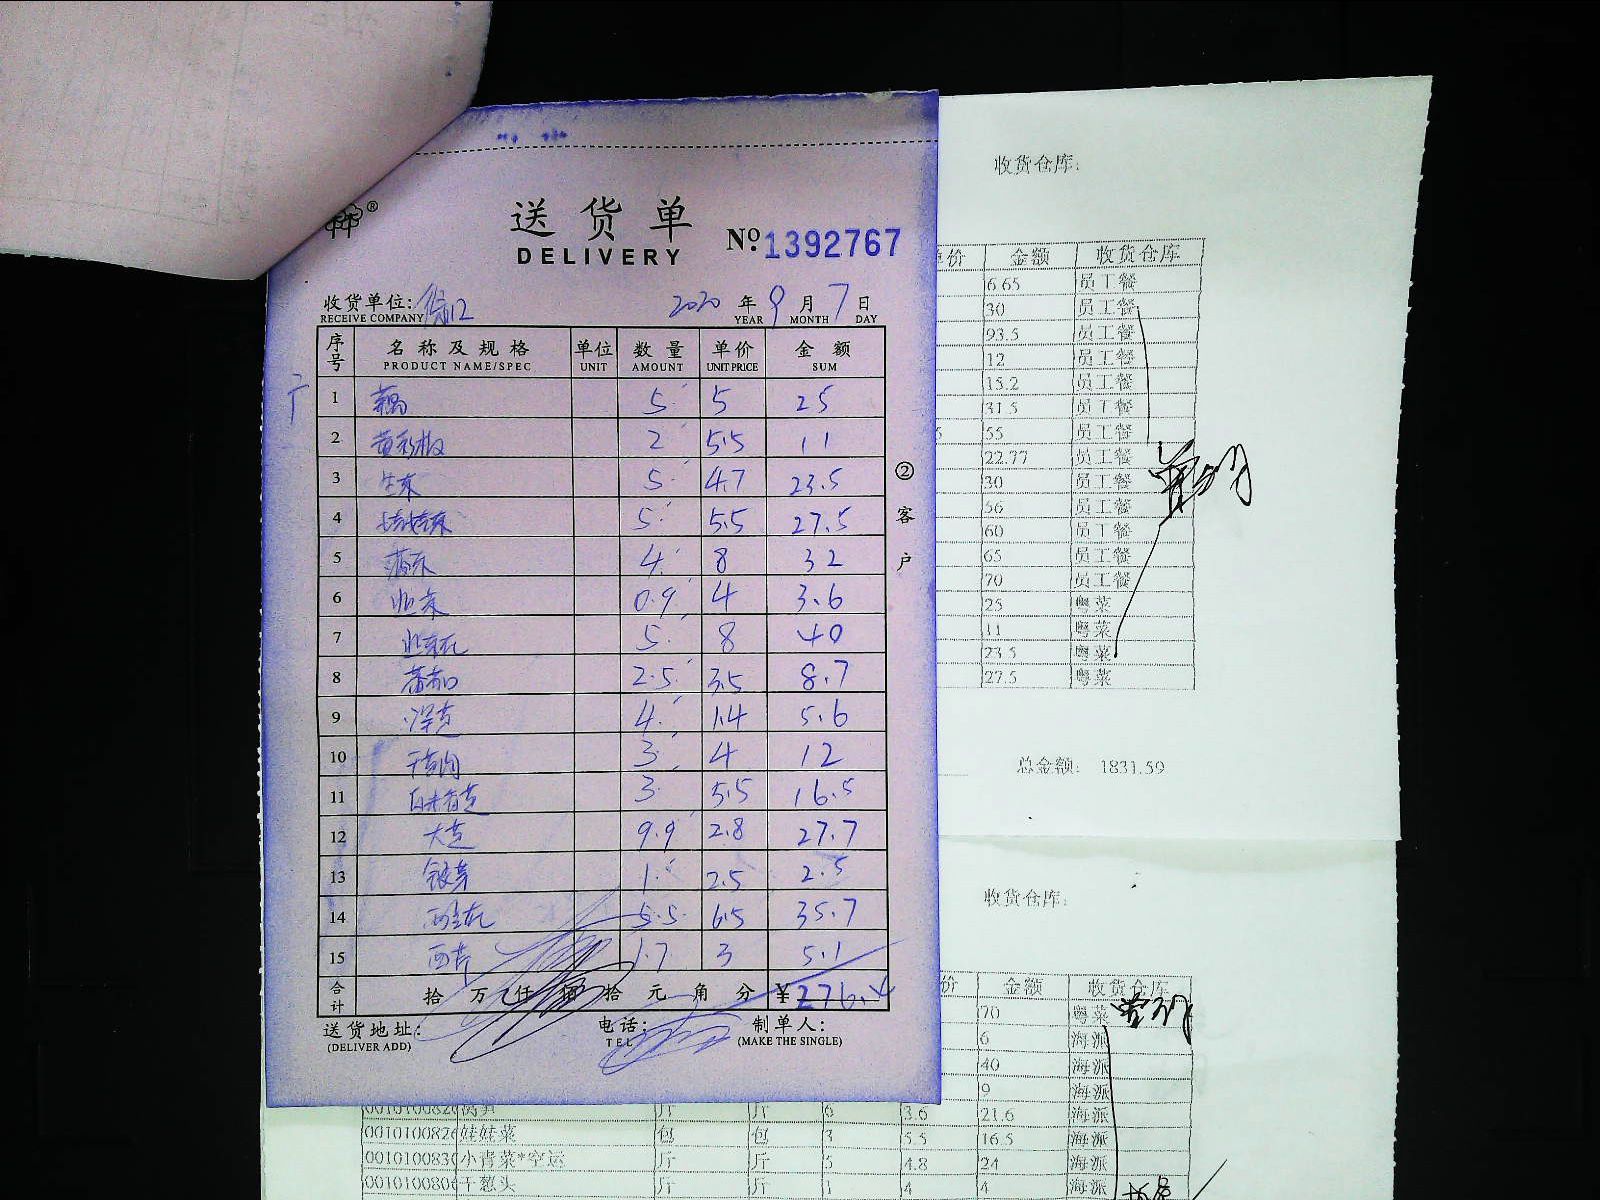 送货单
DELIVERY
No. 1392767
收货单位:
RECEIVE COMPANY
2020 年 9 月 7 日
YEAR MONTH DAY
序号 名称及规格 单位 数量 单价 金额
PRODUCT NAME/SPEC UNIT AMOUNT UNIT PRICE SUM
1 藕 5 5 25
2 黄彩椒 2 5.5 11
3 生菜 5 4.7 23.5
4 娃娃菜 5 5.5 27.5
5 4 8 32
6 韭菜 0.9 4 3.6
7 5 8 40
8 2.5 3.5 8.7
9 洋芋 4 1.4 5.6
10 3 4 12
11 3 5.5 16.5
12 大芋 9.9 2.8 27.7
13 银芽 1 2.5 2.5
14 西兰花 5.5 6.5 35.7
15 西芹 1.7 3 5.1
合计 拾 万 仟 佰 拾 元 角 分 ¥276.4
送货地址:
(DELIVER ADD)
电话:
TEL
制单人:
(MAKE THE SINGLE)
②客户
收货仓库:
价 金额 收货仓库
6.65 员工餐
30 员工餐
93.5 员工餐
12 员工餐
15.2 员工餐
31.5 员工餐
55 员工餐
22.77 员工餐
30 员工餐
56 员工餐
60 员工餐
65 员工餐
70 员工餐
25 粤菜
11 粤菜
23.5 粤菜
27.5 粤菜
总金额: 1831.59
收货仓库:
价 金额 收货仓库
70 粤菜
6 海派
40 海派
9 海派
莴笋 斤 斤 6 3.6 21.6 海派
娃娃菜 包 包 3 5.5 16.5 海派
小青菜*空运 斤 斤 5 4.8 24 海派
干葱头 斤 斤 1 4 4 海派